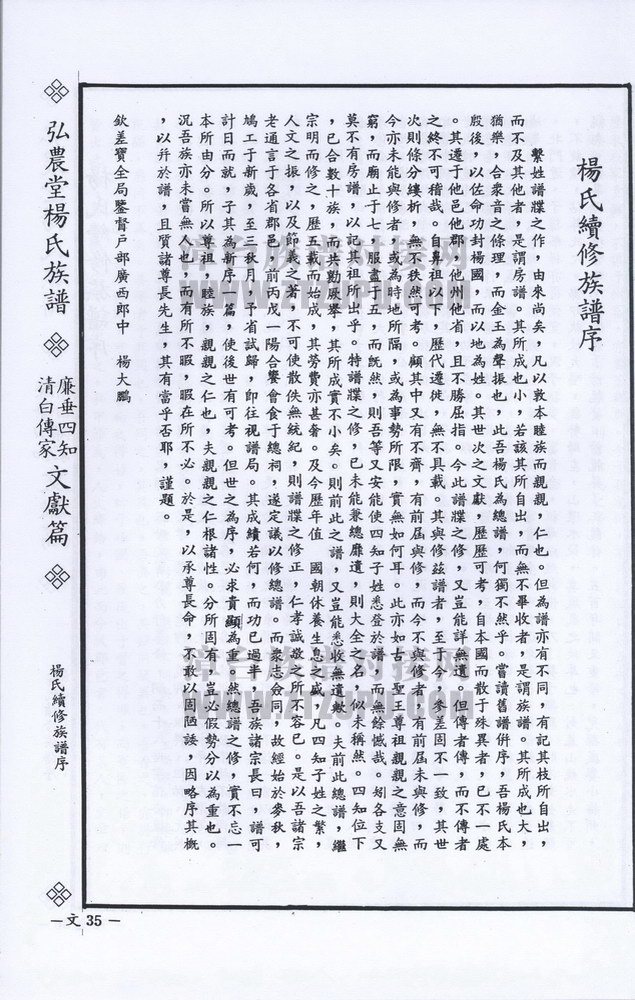 楊氏續修族譜序
繫姓譜牒之作，由來尚矣，凡以敦本睦族而親親，仁也。但為譜亦有不同，有記其枝所自出，
而不及其他者，是謂房譜。其所成也小，若該其所自出，而無不畢收者，是謂族譜。其所成也大，
猶樂，合衆音之條理，而金玉為聲振也，此吾楊氏為總譜，何獨不然乎。嘗讀舊譜併序，吾楊氏本
殷後，以佐命功封楊國，而以地為姓。其世次之文獻，歷歷可考，自本國而散于殊異者，已不一處
。其遷于他邑他郡，他州他省，且不勝屈指。今此譜牒之修，又豈能詳無遺。但傳者傳，而不傳者
之終不可稽哉。自鼻祖以下，歷代遷徙，無不具載。其與修茲譜者，至于今，參差固不一致，其世
次則條分縷析，無不秩然可考。顧其中又有不齊，有前屆與修，而今不與修者，有前屆未與修，而
今亦未能與修者，或為時地所隔，或為事勢所限，實無如何耳。此亦如古聖王尊祖親親之意固無
窮，而廟止于七，服盡于五，而旣然，則吾等又安能使四知子姓悉登於譜，而無餘憾哉。矧各支又
莫不有房譜，以記其祖所出乎。特譜牒之修，已未能兼總靡遺，則大全之名，似未稱然。四知位下
，已合數十族，而共勷厥舉，其所成實不小矣。則前此之譜，又豈能悉收無遺歟。夫前此總譜，繼
宗明而修之，歷五載而始成，其勞費亦甚奢。及今歷年值　國朝休養生息之盛，凡四知子姓之繁，
人文之振，以及節義之著，不可使散佚無統紀，則譜牒之修正，仁孝誠敬之所不容已。是以吾諸宗
老通言于各省郡邑，前丙戊一陽合饗會食于總祠，遂定議以修總譜。而衆志僉同，故經始於麥秋，
鳩工于新歲，至三秋月，予省試歸，即往視譜局。其成績若何，而功已過半，吾族諸宗長曰，譜可
計日而就，子其為新序一篇，使後世有可考。但世之為序，必求貴顯為重，然總譜之修，實不忘一
本所由分。所以尊祖、睦族，親親之仁也，夫親親之仁根諸性。分所固有，豈必假勢分以為重也。
況吾族亦未嘗無人也，而有所不暇，暇在所不必。於是，以承尊長命，不敢以固陋諉，因略序其概
，以弁於譜，且質諸尊長先生，其有當乎否耶，謹題。
欽差寶全局鑒督戶部廣西郎中　楊大鵬
弘農堂楊氏族譜
廉垂四知
清白傳家
文獻篇
楊氏續修族譜序
—文 35 —